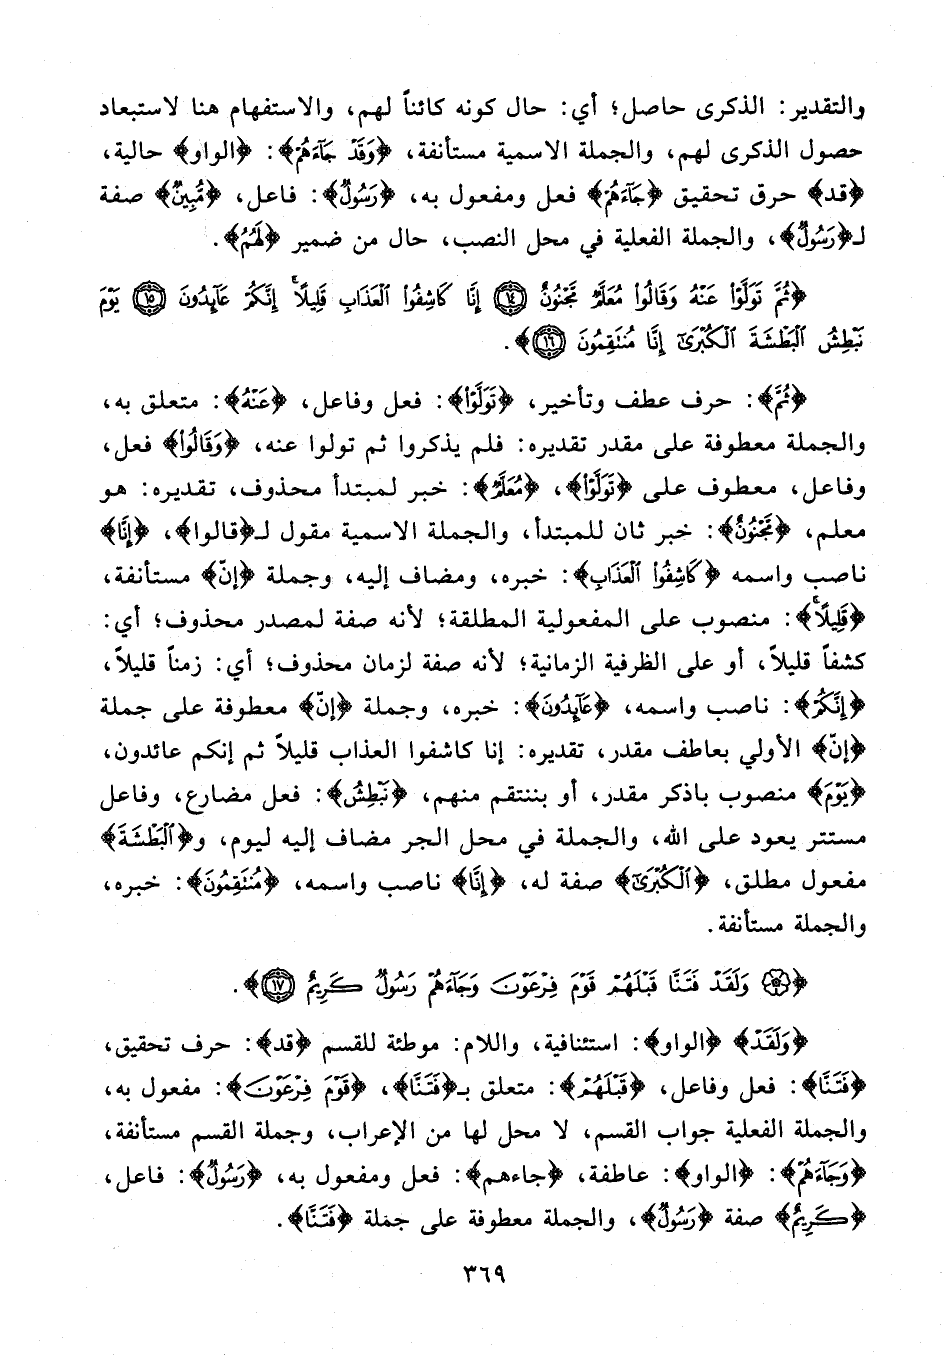 والتقدير: الذكرى حاصل؛ أي: حال كونه كائناً لهم، والاستفهام هنا لاستبعاد
حصول الذكرى لهم، والجملة الاسمية مستأنفة، ﴿وَقَدْ جَآءَهُمْ﴾: ﴿الواو﴾ حالية،
﴿قد﴾ حرق تحقيق ﴿جَآءَهُمْ﴾ فعل ومفعول به، ﴿رَسُولٌ﴾: فاعل، ﴿مُّبِينٌ﴾ صفة
لـ﴿رَسُولٌ﴾، والجملة الفعلية في محل النصب، حال من ضمير ﴿لَهُمُ﴾.
﴿ثُمَّ تَوَلَّوْا۟ عَنْهُ وَقَالُوا۟ مُعَلَّمٌ مَّجْنُونٌ ١٤ إِنَّا كَاشِفُوا۟ ٱلْعَذَابِ قَلِيلًا ۚ إِنَّكُمْ عَآئِدُونَ ١٥ يَوْمَ
نَبْطِشُ ٱلْبَطْشَةَ ٱلْكُبْرَىٰٓ إِنَّا مُنتَقِمُونَ ١٦﴾.
﴿ثُمَّ﴾: حرف عطف وتأخير، ﴿تَوَلَّوْا۟﴾: فعل وفاعل، ﴿عَنْهُ﴾: متعلق به،
والجملة معطوفة على مقدر تقديره: فلم يذكروا ثم تولوا عنه، ﴿وَقَالُوا۟﴾ فعل،
وفاعل، معطوف على ﴿تَوَلَّوْا۟﴾، ﴿مُعَلَّمٌ﴾: خبر لمبتدأ محذوف، تقديره: هو
معلم، ﴿مَّجْنُونٌ﴾: خبر ثان للمبتدأ، والجملة الاسمية مقول لـ﴿قالوا﴾، ﴿إِنَّا﴾
ناصب واسمه ﴿كَاشِفُوا۟ ٱلْعَذَابِ﴾: خبره، ومضاف إليه، وجملة ﴿إنّ﴾ مستأنفة،
﴿قَلِيلًا ۚ﴾: منصوب على المفعولية المطلقة؛ لأنه صفة لمصدر محذوف؛ أي:
كشفاً قليلاً، أو على الظرفية الزمانية؛ لأنه صفة لزمان محذوف؛ أي: زمناً قليلاً،
﴿إِنَّكُمْ﴾: ناصب واسمه، ﴿عَآئِدُونَ﴾: خبره، وجملة ﴿إنّ﴾ معطوفة على جملة
﴿إنّ﴾ الأولي بعاطف مقدر، تقديره: إنا كاشفوا العذاب قليلاً ثم إنكم عائدون،
﴿يَوْمَ﴾ منصوب باذكر مقدر، أو بننتقم منهم، ﴿نَبْطِشُ﴾: فعل مضارع، وفاعل
مستتر يعود على الله، والجملة في محل الجر مضاف إليه ليوم، و﴿ٱلْبَطْشَةَ﴾
مفعول مطلق، ﴿ٱلْكُبْرَىٰٓ﴾ صفة له، ﴿إِنَّا﴾ ناصب واسمه، ﴿مُنتَقِمُونَ﴾: خبره،
والجملة مستأنفة.
﴿۞ وَلَقَدْ فَتَنَّا قَبْلَهُمْ قَوْمَ فِرْعَوْنَ وَجَآءَهُمْ رَسُولٌ كَرِيمٌ ١٧﴾.
﴿وَلَقَدْ﴾ ﴿الواو﴾: استئنافية، واللام: موطئة للقسم ﴿قد﴾: حرف تحقيق،
﴿فَتَنَّا﴾: فعل وفاعل، ﴿قَبْلَهُمْ﴾: متعلق بـ﴿فَتَنَّا﴾، ﴿قَوْمَ فِرْعَوْنَ﴾: مفعول به،
والجملة الفعلية جواب القسم، لا محل لها من الإعراب، وجملة القسم مستأنفة،
﴿وَجَآءَهُمْ﴾: ﴿الواو﴾: عاطفة، ﴿جاءهم﴾: فعل ومفعول به، ﴿رَسُولٌ﴾: فاعل،
﴿كَرِيمٌ﴾ صفة ﴿رَسُولٌ﴾، والجملة معطوفة على جملة ﴿فَتَنَّا﴾.
٣٦٩